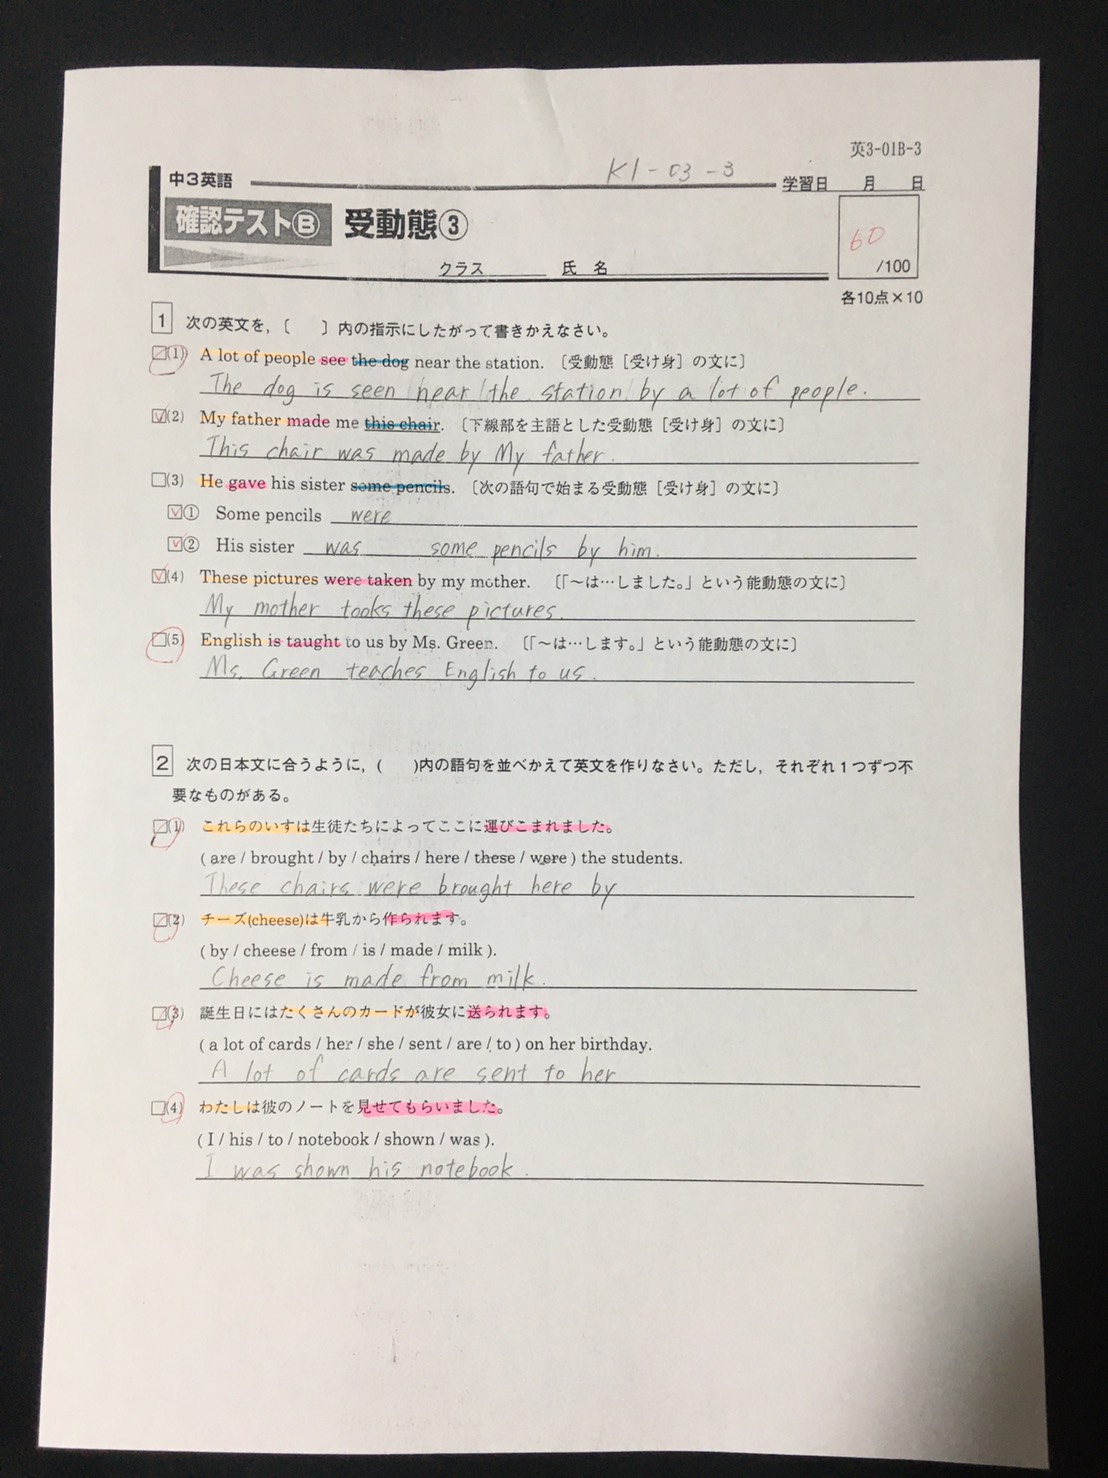 英3-01B-3
K1-03-3
中3英語
学習日 月 日
確認テストⒷ 受動態③
60
/100
クラス 氏名
各10点×10
1 次の英文を,〔 〕内の指示にしたがって書きかえなさい。
(1) A lot of people see the dog near the station. 〔受動態［受け身］の文に〕
The dog is seen near the station by a lot of people.
(2) My father made me this chair. 〔下線部を主語とした受動態［受け身］の文に〕
This chair was made by My father.
(3) He gave his sister some pencils. 〔次の語句で始まる受動態［受け身］の文に〕
① Some pencils were
② His sister was some pencils by him.
(4) These pictures were taken by my mother. 〔「～は…しました。」という能動態の文に〕
My mother tooks these pictures.
(5) English is taught to us by Ms. Green. 〔「～は…します。」という能動態の文に〕
Ms. Green teaches English to us.
2 次の日本文に合うように,( )内の語句を並べかえて英文を作りなさい。ただし,それぞれ1つずつ不
要なものがある。
(1) これらのいすは生徒たちによってここに運びこまれました。
( are / brought / by / chairs / here / these / were ) the students.
These chairs were brought here by
(2) チーズ(cheese)は牛乳から作られます。
( by / cheese / from / is / made / milk ).
Cheese is made from milk.
(3) 誕生日にはたくさんのカードが彼女に送られます。
( a lot of cards / her / she / sent / are / to ) on her birthday.
A lot of cards are sent to her
(4) わたしは彼のノートを見せてもらいました。
( I / his / to / notebook / shown / was ).
I was shown his notebook.